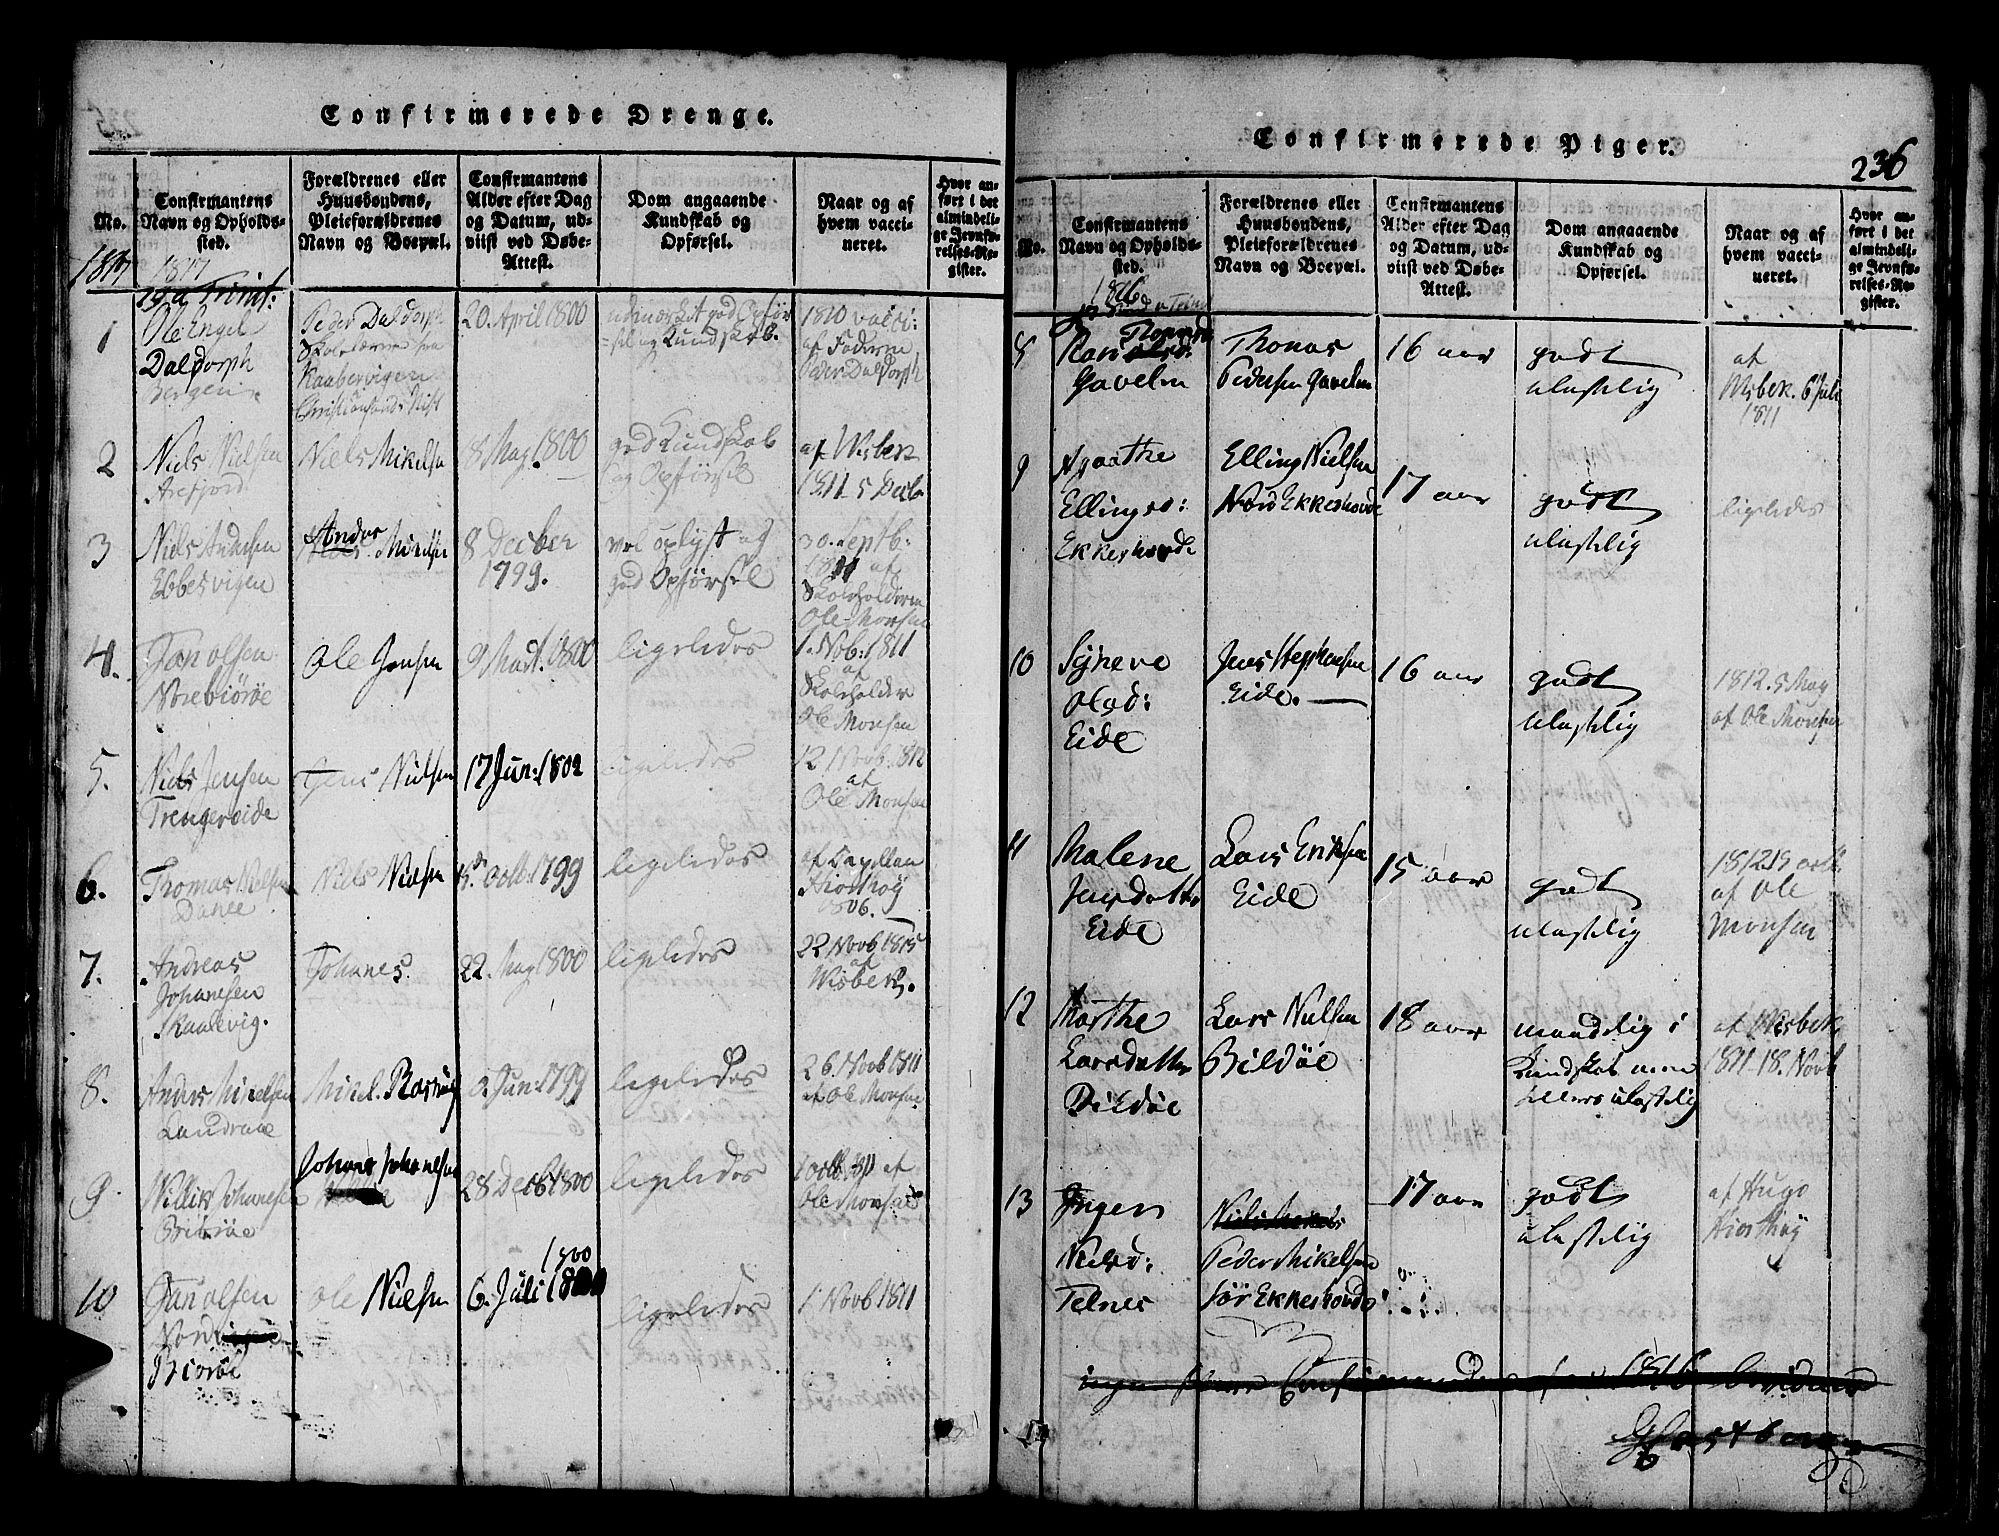 Confirmerede Drenge.
No.
Confirmantens
Navn og Opholds-
sted.
Forældrenes eller
Huusbondens,
Pleieforældrenes
Navn og Boepæl.
Confirmantens
Alder efter Dag
og Datum, ud-
viist ved Døbe-
Attest.
Dom angaaende
Kundskab og
Opførsel.
Naar og af
hvem vacci-
neret.
Hvor an-
ført i det
almindeli-
ge Jevnfø-
relses-Re-
gister.
1817
1817
Trinit:
1
Ole Engel
Daldorph
Bergen
Peder Daldorph
Skolelærer fra
Kaabervigen
Christiansands Stift
20. April 1800
udmærket god Opfør
-sel og Kundskab.
1810 vacci:
af Faderen
Peder Daldorph
2
Niels Nielsen
Arefjord
Niels Mikelsen
8 May 1800
god Kundskab
og Opførsel
af Wisbek
1811 5 Decbr
3
Niels Andersen
Ebbesvigen
Anders
8 Decber
1799.
vel oplyst og
god Opførsel
30. Septb:
1811 af
Skoleholderen
Ole Monsen
4.
Jan Olsen
Norebiørøe
Ole Jensen
9 Mart. 1800
ligeledes
1. Novb: 1811
af
Skoleholder
Ole Monsen
5.
Niels Jensen
Trengereide
Jens Nielsen
17 Jun: 1802
ligeledes
12 Novb. 1812
af
Ole Monsen
6.
Thomas Nielsen
Niels Nielsen
15 Octb: 1799
ligeledes
af Capellan
Hiorthøy
1806.
7.
Andreas
Johanesen
Skaalevig.
Johanes.
22. May 1800
ligeledes
22 Novb 1815
af
Wisbek.
8.
Anders Mikelsen
Landraae
Mikel Rasmus
Jun: 1799
ligeledes
26. Novb 1811
af Ole Monsen
9
Johanesen
Johanes Johanesen
28 Decb 1800
ligeledes
1 octb. 1811 af
Ole Monsen
10
Jan Olsen
Nord
Biørøe
Ole Nielsen
1800
6. Juli
ligeledes
1 Novb 1811
Confirmerede Piger.
236
No.
Confirmantens
Navn og Opholds-
sted.
Forældrenes eller
Huusbondens,
Pleieforældrenes
Navn og Boepæl.
Confirmantens
Alder efter Dag
og Datum, ud-
viist ved Døbe-
Attest.
Dom angaaende
Kundskab og
Opførsel.
Naar og af
hvem vacci-
neret.
Hvor an-
ført i det
almindeli-
ge Jevnfø-
relses-Re-
gister.
1816
8
Gavelen
Thomas
Pedersen Gavelen
16 aar
godt
ulastelig
af
Wisbek. 6 Juli
1811
9
Agaathe
Ellingsd:
Ekkeshovde
Elling Nielsen
Nord Ekkeshovde
17 aar
godt
ulastelig
ligeledes
10
Syneve
Olsd:
Eide
Jens Stephensen
Eide.
16 aar
godt
ulastelig
1812. 5 May
af Ole Monsen
11
Malene
Eide
Lars Eriksen
Eide
15 aar
godt
ulastelig
af Ole
Monsen
12
Marthe
Larsdatter
Bildøe
Lars Nielsen
Bildøe
18 aar
maadelig i
Kundskab men
ellers ulastelig
af Wisbek
1811 18. Novb
13
Ingen
Nielsd:
Telnes
Peder Mikelsen
Sør Ekkeshovde
17 aar
godt
ulastelig
af Hugo
Hiorthøy
1816